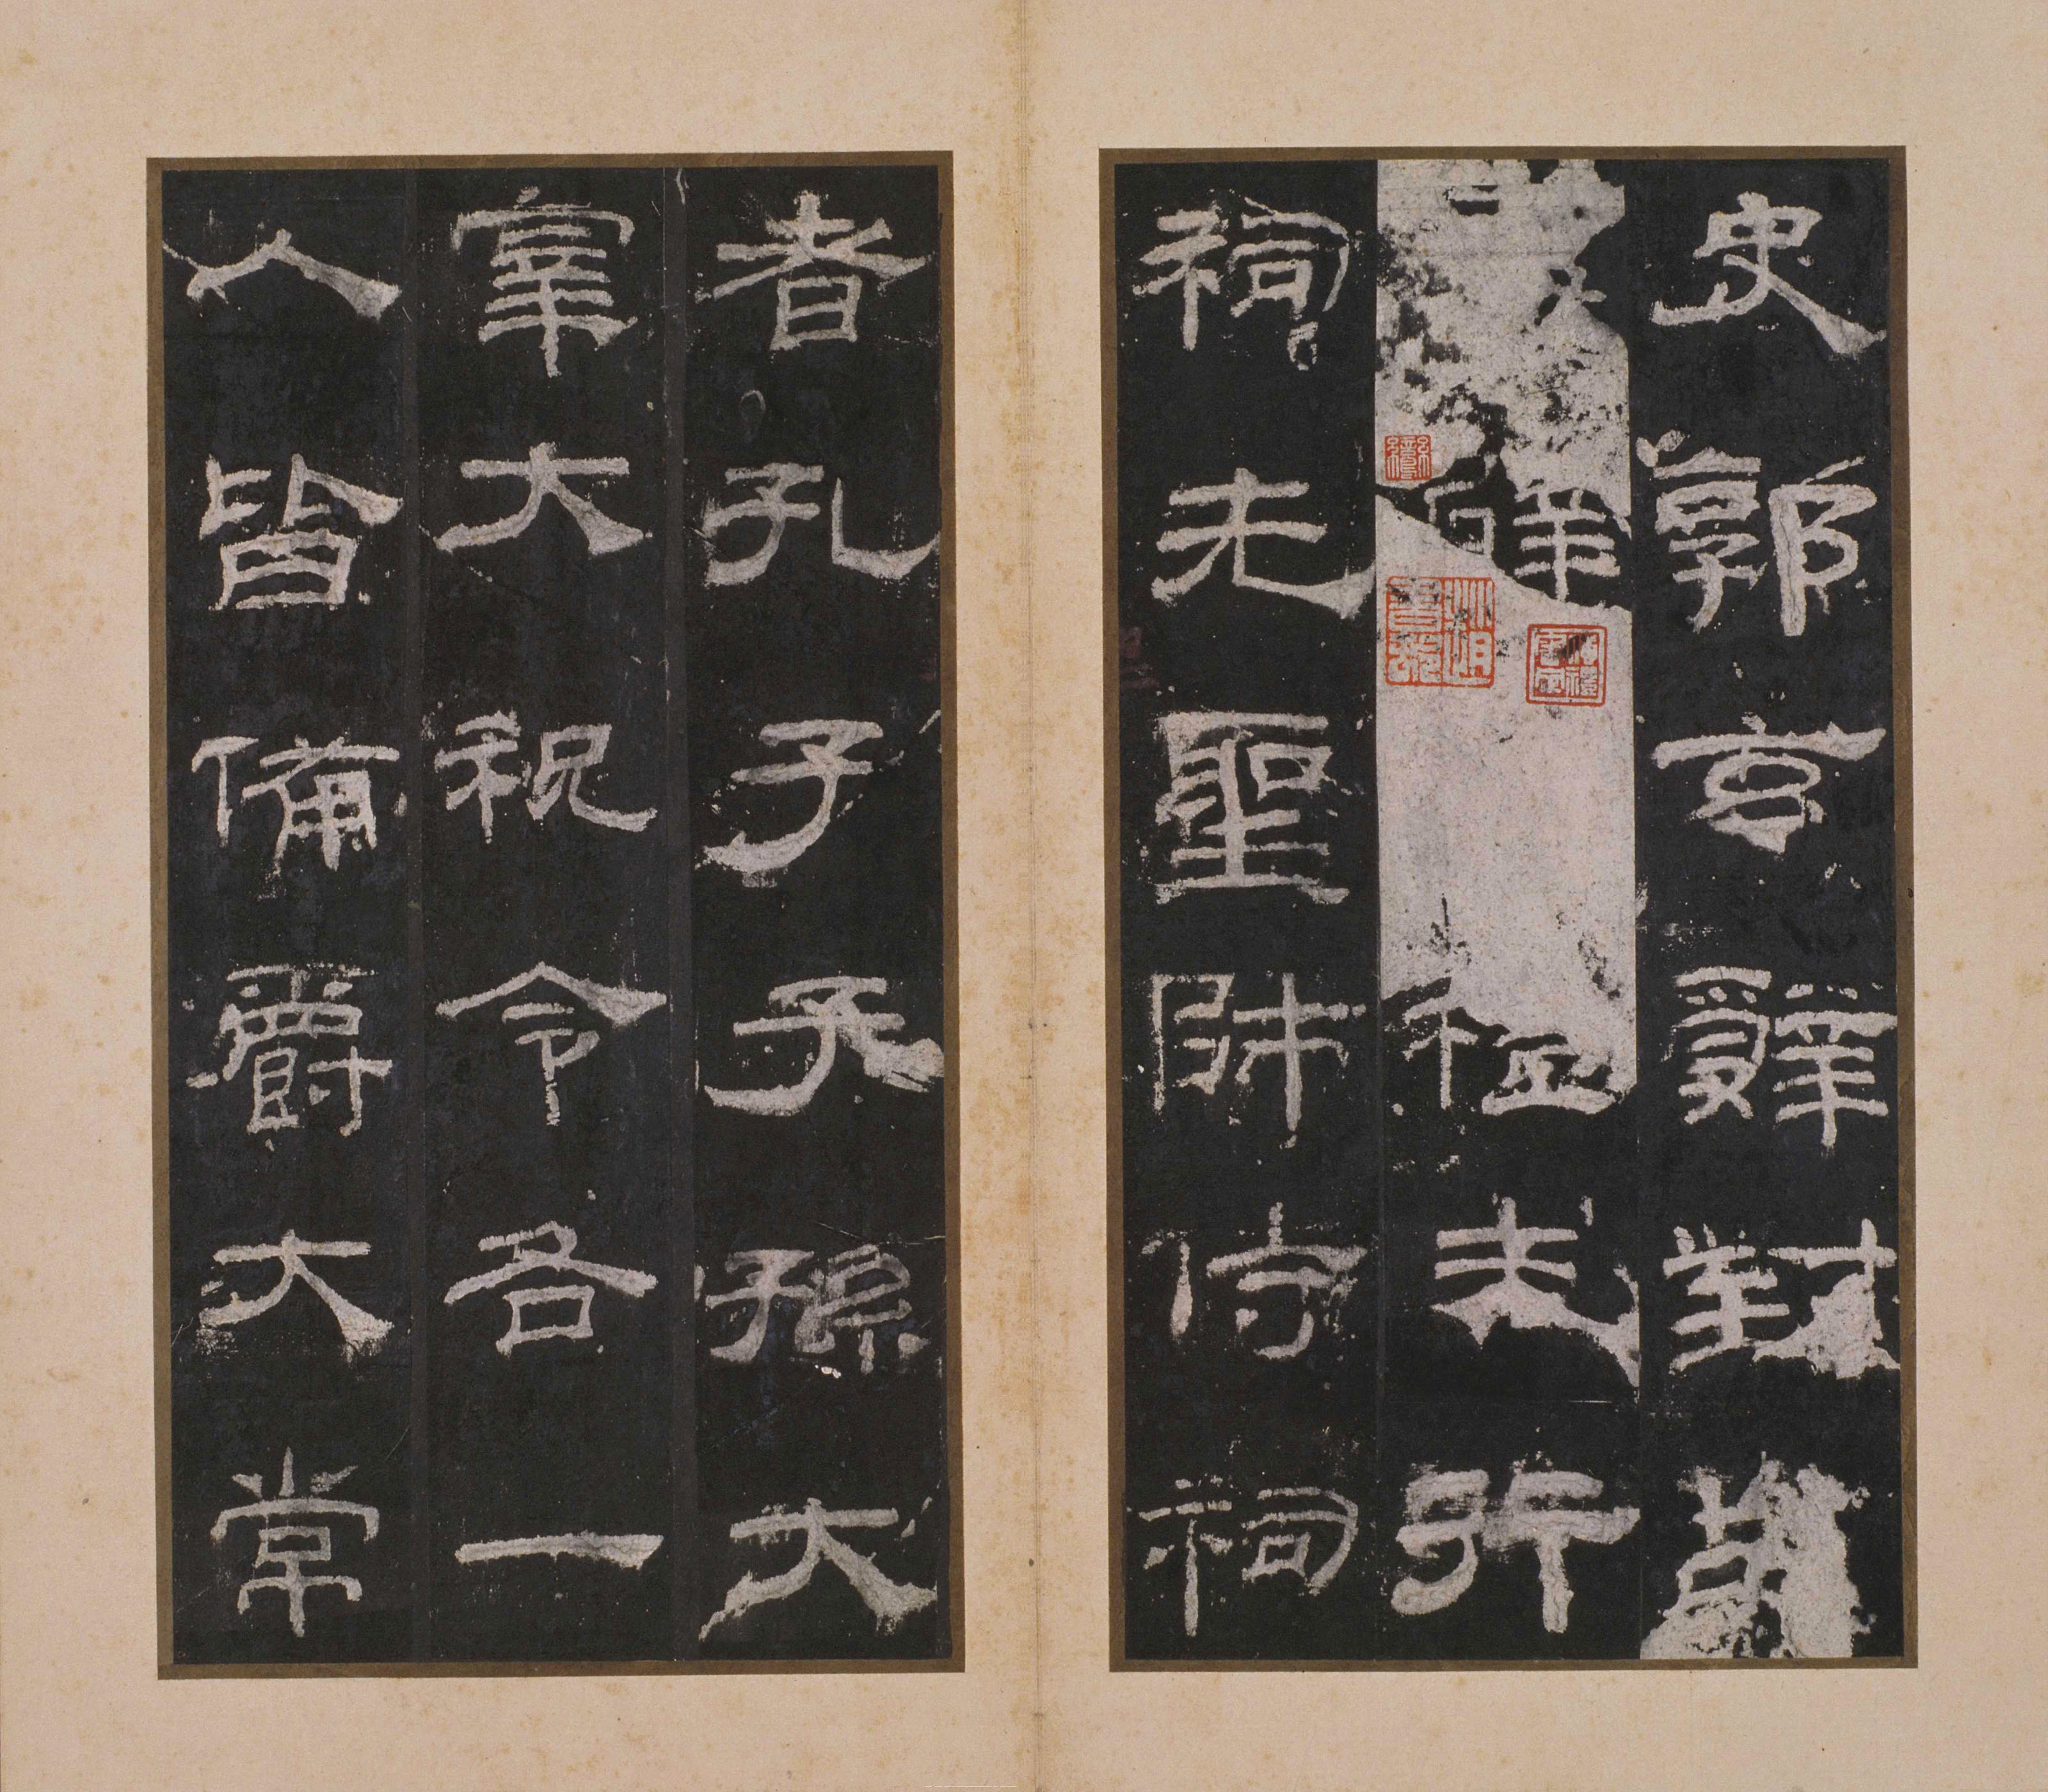 史郭玄辭對故
辟禮未行
祠先聖師侍祠
者孔子子孫大
宰大祝令各一
人皆備爵大常